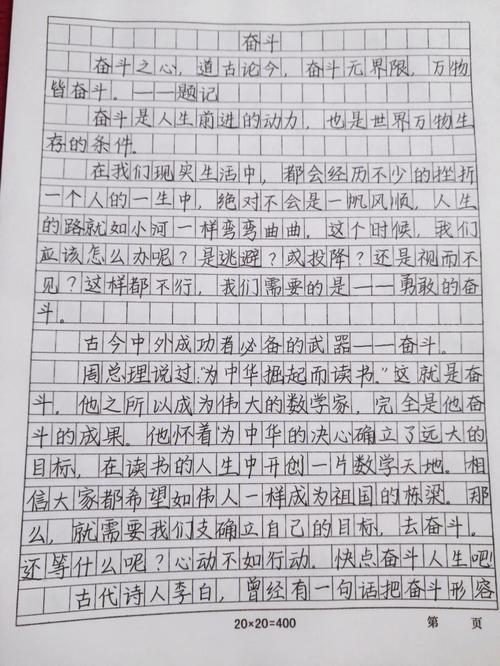 奋斗
奋斗之心，道古论今，奋斗无界限，万物
皆奋斗。——题记
奋斗是人生前进的动力，也是世界万物生
存的条件。
在我们现实生活中，都会经历不少的挫折
一个人的一生中，绝对不会是一帆风顺，人生
的路就如小河一样弯弯曲曲，这个时候，我们
应该怎么办呢？是逃避？或投降？还是视而不
见？这样都不行，我们需要的是——勇敢的奋
斗。
古今中外成功者必备的武器——奋斗。
周总理说过：“为中华掘起而读书。”这就是奋
斗。他之所以成为伟大的数学家，完全是他奋
斗的成果。他怀着“为中华的决心确立了远大的
目标，在读书的人生中开创一片数学天地。相
信大家都希望如伟人一样成为祖国的栋梁。那
么，就需要我们支确立自己的目标，去奋斗。
还等什么呢？心动不如行动。快点奋斗人生吧！
古代诗人李白，曾经有一句话把奋斗形容
20×20=400
第 页